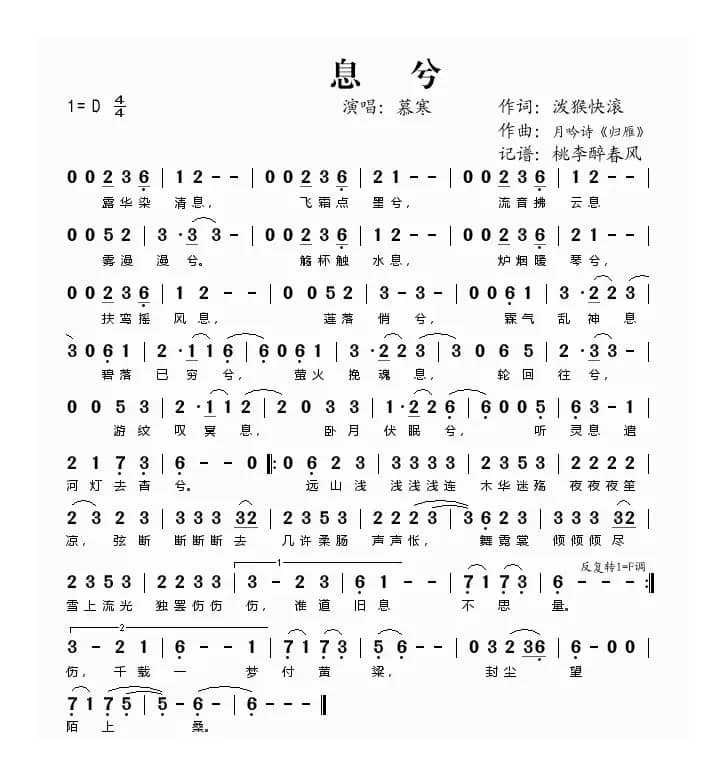 息 兮
1= D 4/4 演唱：慕寒 作词：泼猴快滚
作曲：月吟诗《归雁》
记谱：桃李醉春风
0 0 2 3 6 | 1 2 - - | 0 0 2 3 6 | 2 1 - - | 0 0 2 3 6 | 1 2 - - |
露华染 清息， 飞霜点 墨兮， 流音拂 云息
0 0 5 2 | 3 · 3 3 - | 0 0 2 3 6 | 1 2 - - | 0 0 2 3 6 | 2 1 - - |
雾漫 漫兮。 觞杯触 水息， 炉烟暖 琴兮，
0 0 2 3 6 | 1 2 - - | 0 0 5 2 | 3 - 3 - | 0 0 6 1 | 3 · 2 2 3 |
扶鸾摇 风息， 莲落 悄兮， 霖气 乱神息
3 0 6 1 | 2 · 1 1 6 | 6 0 6 1 | 3 · 2 2 3 | 3 0 6 5 | 2 · 3 3 - |
碧落 已穷兮， 萤火 挽魂息， 轮回 往兮，
0 0 5 3 | 2 · 1 1 2 | 2 0 3 3 | 1 · 2 2 6 | 6 0 0 5 | 6 3 - 1 |
游纹 叹冥息， 卧月 伏眠兮， 听 灵息追
2 1 7 3 | 6 - - 0 ‖: 0 6 2 3 | 3 3 3 3 | 2 3 5 3 | 2 2 3 3 |
河灯去杳 兮。 远山浅 浅浅浅连 木华迷殇 夜夜夜笙
2 3 2 3 | 3 3 3 32 | 2 3 5 3 | 2 2 2 3 | 3 6 2 3 | 3 3 3 32 |
凉，弦断 断断断去 几许柔肠 声声怅， 舞霓裳 倾倾倾尽
1 反复转1=F调
2 3 5 3 | 2 2 3 3 | 3 - 2 3 | 6 1 - - | 7 1 7 3 | 6 - - - :‖
雪上流光 独罢伤伤 伤，谁道 旧息 不思 量。
2
3 - 2 1 | 6 - - 1 | 7 1 7 3 | 5 6 - - | 0 3 2 36 | 6 - 0 0 |
伤，千载 一 梦 付黄 粱， 封尘 望
7 1 7 5 | 5 - 6 - | 6 - - - ‖
陌上 桑。